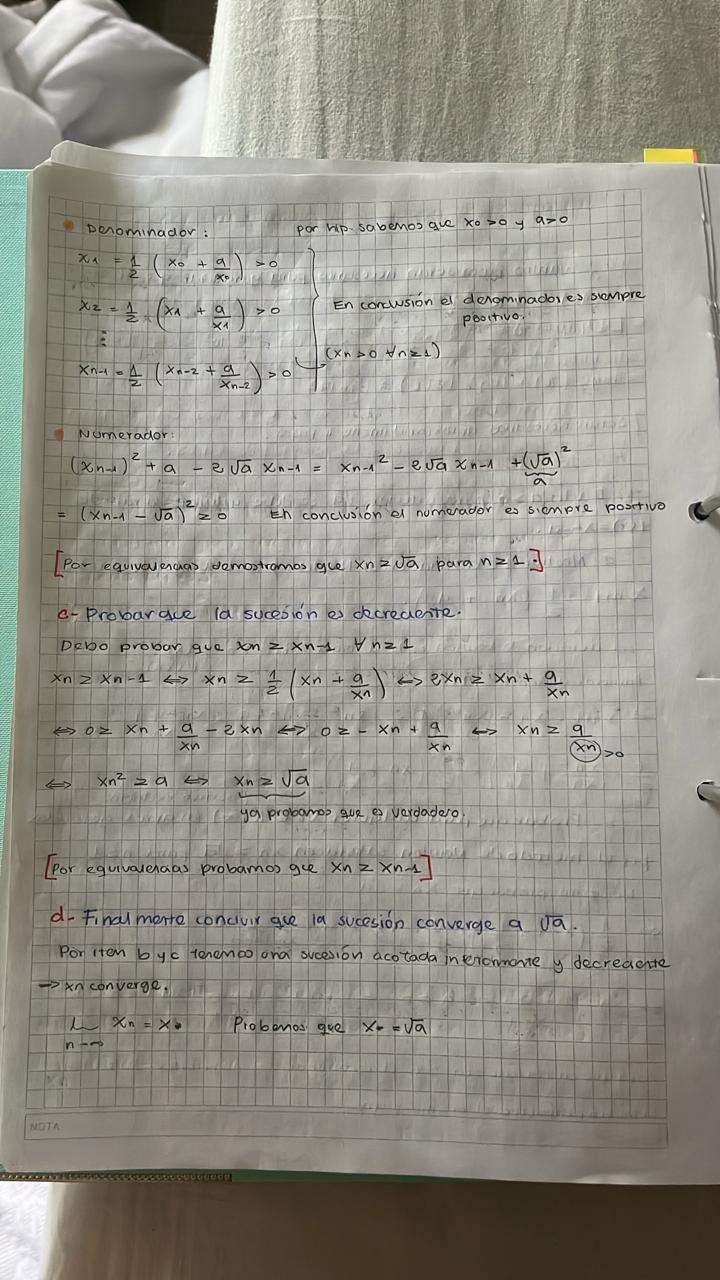 • Denominador: por hip. sabemos que x₀ >0 y a>0
x₁ = 1/2 (x₀ + a/x₀) >0
x₂ = 1/2 (x₁ + a/x₁) >0
En conclusión el denominador es siempre
positivo.
⋮
(xn >0 ∀n≥1)
xn-1 = 1/2 (xn-2 + a/xn-2) >0
• Numerador:
(xn-1)² + a - 2√a xn-1 = xn-1² - 2√a xn-1 + (√a)²
a
= (xn-1 - √a)² ≥ 0 En conclusión el numerador es siempre positivo
[Por equivalencias demostramos que xn ≥ √a para n ≥ 1.]
c- Probar que la sucesión es decreciente.
Debo probar que xn ≥ xn-1 ∀n≥1
xn ≥ xn-1 ⟺ xn ≥ 1/2 (xn + a/xn) ⟺ 2xn ≥ xn + a/xn
⟺ 0 ≥ xn + a/xn - 2xn ⟺ 0 ≥ - xn + a/xn ⟺ xn ≥ a/xn >0
⟺ xn² ≥ a ⟺ xn ≥ √a
ya probamos que es verdadero.
[Por equivalencias probamos que xn ≥ xn-1]
d- Finalmente concluir que la sucesión converge a √a.
Por item b y c tenemos una sucesión acotada inferiormente y decreciente
→ xn converge.
Lim xn = x* Probemos que x* = √a
n→∞
NOTA